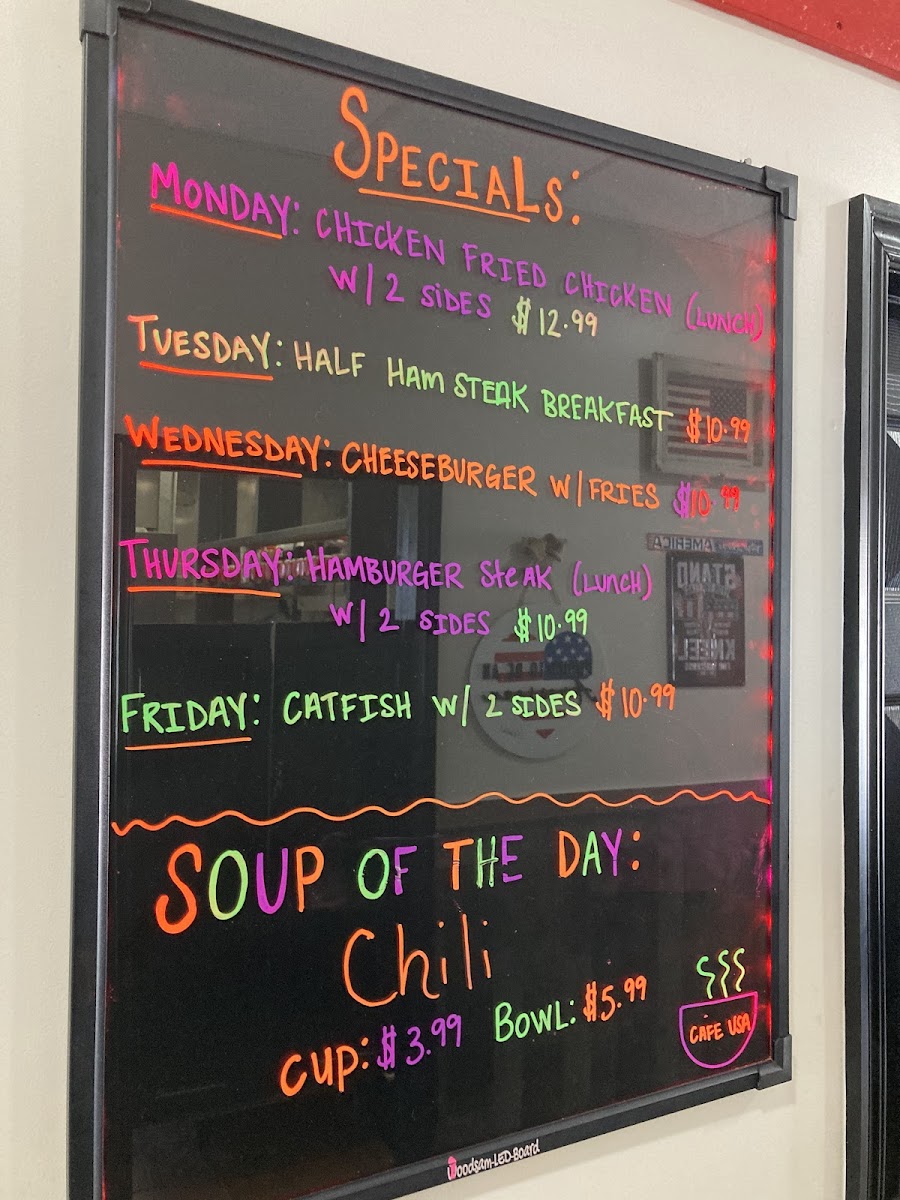 SPECIALS:
MONDAY: CHICKEN FRIED CHICKEN (LUNCH)
W/ 2 SIDES $12.99
TUESDAY: HALF HAM STEAK BREAKFAST $10.99
WEDNESDAY: CHEESEBURGER W/FRIES $10.99
THURSDAY: HAMBURGER STEAK (LUNCH)
W/ 2 SIDES $10.99
FRIDAY: CATFISH W/ 2 SIDES $10.99
AMERICA
STAND
KNEEL
SOUP OF THE DAY:
Chili
CUP: $3.99 BOWL: $5.99
CAFE USA
Woodsam-LED-Board